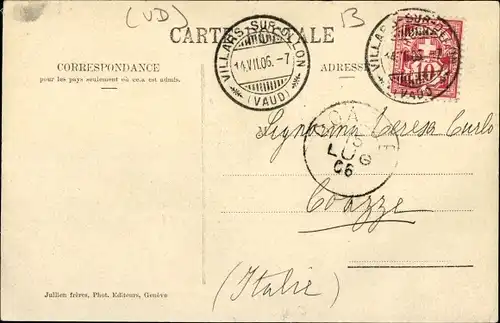 (VD)
B
CARTE POSTALE
VILLARS-SUR-OLLON
14.VII.06.-7
(VAUD)
VILLARS-SUR-OLLON
(VAUD)
10
CORRESPONDANCE
pour les pays seulement où ce.a est admis.
ADRESSE
Signorina Teresa Curlo
15
LUG
06
Coazze
(Italie)
Jullien frères, Phot. Editeurs, Genève